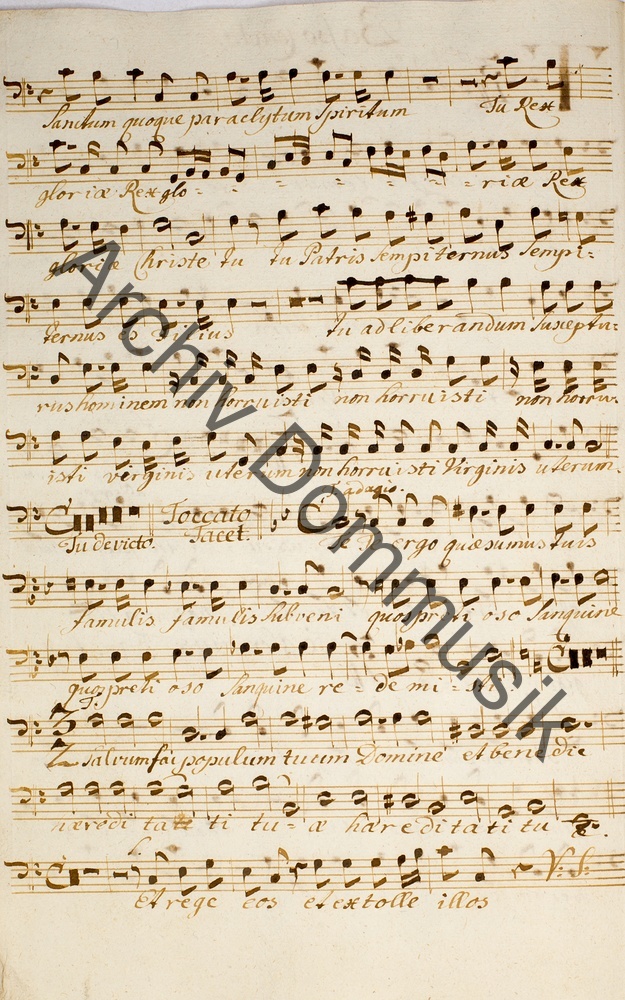 Sanctum quoque paraclytum Spiritum Tu Rex
gloriæ Rex glo - - - - - riæ Rex
gloriæ Christe tu tu Patris sempiternus sempi-
ternus es Filius tu ad liberandum suceptu-
rus hominem non horruisti non horruisti non horru-
isti verginis uterum non horruisti Virginis uterum.
Adagio.
Tu devicto. Toccato Tacet. Te ergo quæsumus tuis
famulis famulis subveni quos preti oso Sanguine
quos preti oso Sanguine re - de mi - sti.
3
2 Salvum fac populum tuum Domine et bene dic
hæredi tati ti tu - æ hæreditati tu æ.
Et rege eos et extolle illos
V: S:
Archiv Dommusik